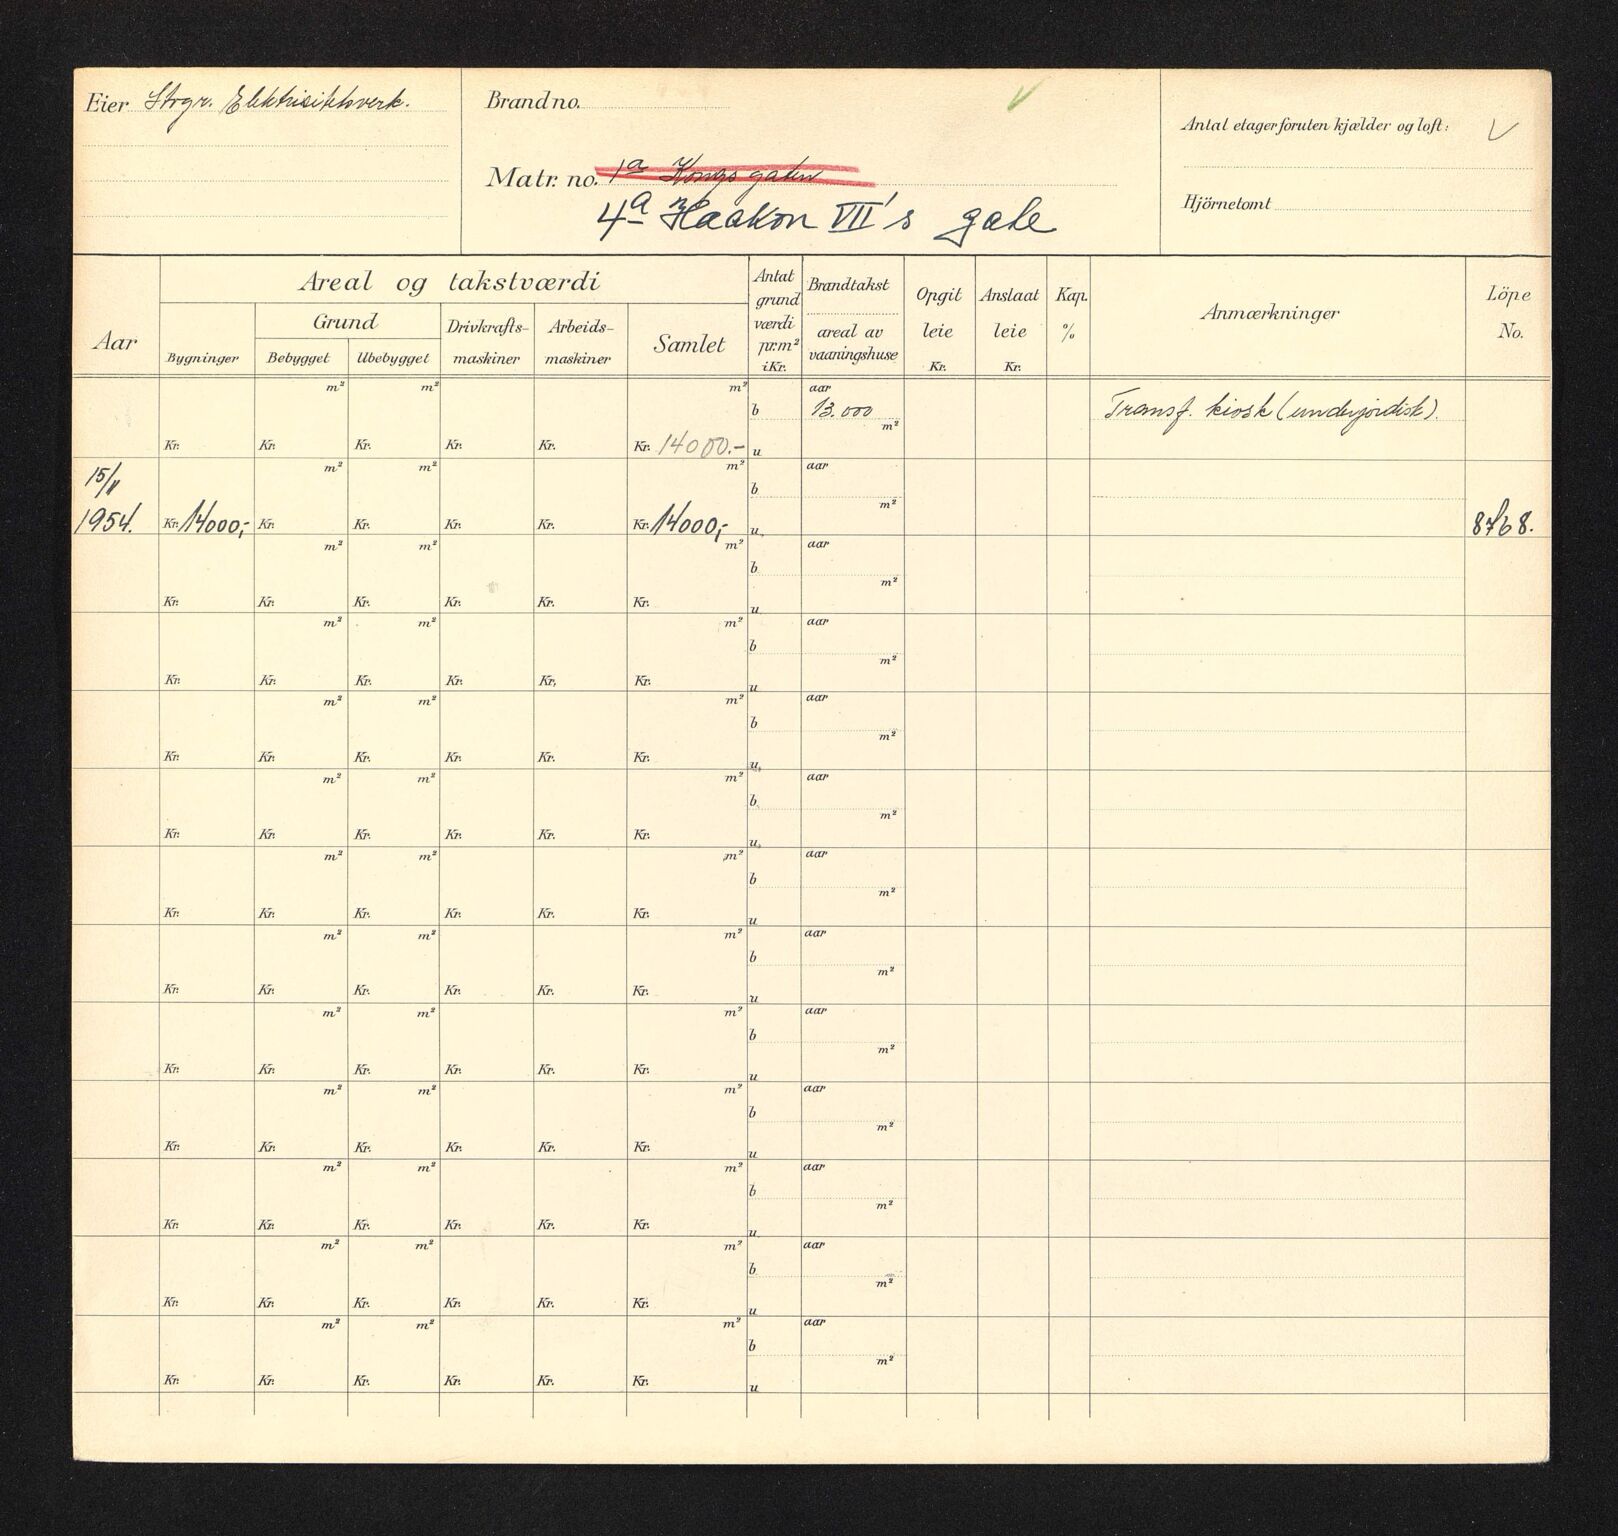 Eier Stvgr. Elektrisitetsverk.
Brand no.
Matr. no. 1a Kongsgaten
4a Haakon VII's gate
Antal etager foruten kjælder og loft:
Hjörnetomt
Aar
Areal og takstværdi
Bygninger
Grund
Bebygget
Ubebygget
Drivkrafts-
maskiner
Arbeids-
maskiner
Samlet
Antat
grund
værdi
pr. m²
i Kr.
Brandtakst
areal av
vaaningshuse
Opgit
leie
Kr.
Anslaat
leie
Kr.
Kap.
%
Anmærkninger
Löpe
No.
m² m² m² aar
b 13.000 Transf. kiosk (underjordisk).
m²
Kr. Kr. Kr. Kr. Kr. Kr. 14000.- u
m² m² m² aar
15/11 b
m²
1954. Kr. 14000,- Kr. Kr. Kr. Kr. Kr. 14000,- u 8768.
m² m² m² aar
b
m²
Kr. Kr. Kr. Kr. Kr. Kr. u
m² m² m² aar
b
m²
Kr. Kr. Kr. Kr. Kr. Kr. u
m² m² m² aar
b
m²
Kr. Kr. Kr. Kr. Kr. Kr. u
m² m² m² aar
b
m²
Kr. Kr. Kr. Kr. Kr. Kr. u
m² m² m² aar
b
m²
Kr. Kr. Kr. Kr. Kr. Kr. u
m² m² m² aar
b
m²
Kr. Kr. Kr. Kr. Kr. Kr. u
m² m² m² aar
b
m²
Kr. Kr. Kr. Kr. Kr. Kr. u
m² m² m² aar
b
m²
Kr. Kr. Kr. Kr. Kr. Kr. u
m² m² m² aar
b
m²
Kr. Kr. Kr. Kr. Kr. Kr. u
m² m² m² aar
b
m²
Kr. Kr. Kr. Kr. Kr. Kr. u
m² m² m² aar
b
m²
Kr. Kr. Kr. Kr. Kr. Kr. u